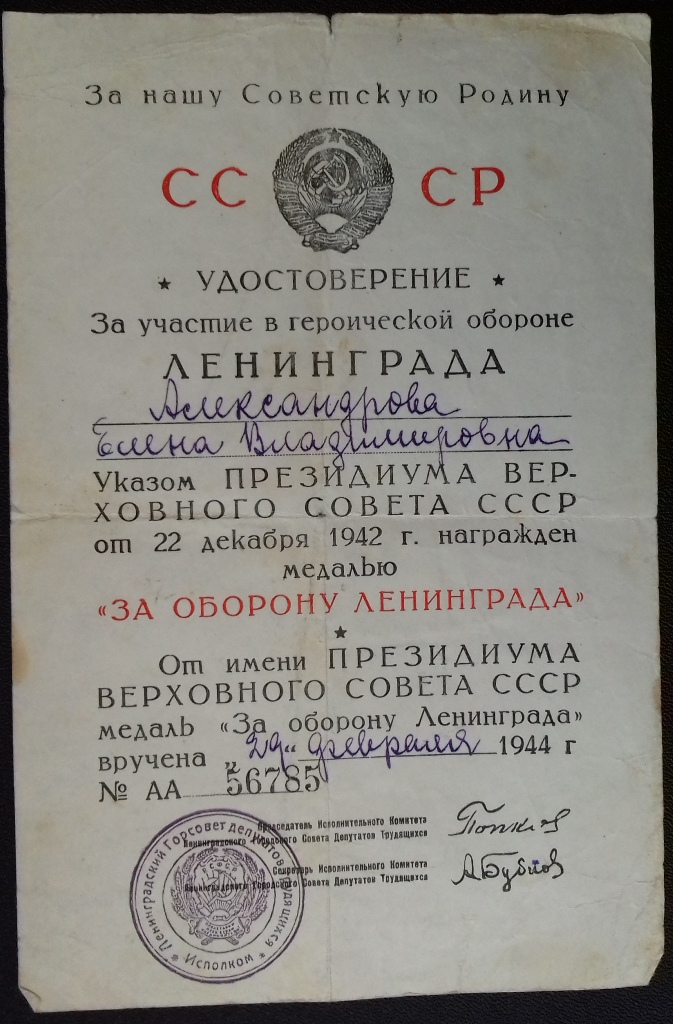 За нашу Советскую Родину
СССР
★ УДОСТОВЕРЕНИЕ ★
За участие в героической обороне
ЛЕНИНГРАДА
Александрова
Елена Владимировна
Указом ПРЕЗИДИУМА ВЕР-
ХОВНОГО СОВЕТА СССР
от 22 декабря 1942 г. награжден
медалью
«ЗА ОБОРОНУ ЛЕНИНГРАДА»
★
От имени ПРЕЗИДИУМА
ВЕРХОВНОГО СОВЕТА СССР
медаль «За оборону Ленинграда»
вручена „29“ февраля 1944 г
№ АА 56785
Председатель Исполнительного Комитета
Ленинградского Городского Совета Депутатов Трудящихся
Попков
Секретарь Исполнительного Комитета
Ленинградского Городского Совета Депутатов Трудящихся
А Бубнов
Ленинградский Горсовет депутатов трудящихся
★ Исполком ★